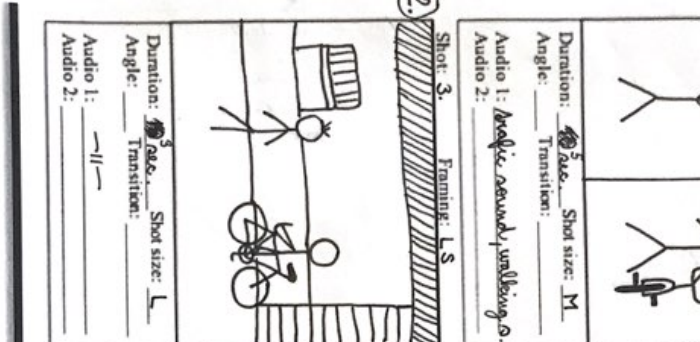 Duration: 5 sec. Shot size: M
Angle: Transition:
Audio 1: trafic sound, walking s.
Audio 2:
2.
Shot: 3. Framing: LS
Duration: 3 sec. Shot size: L
Angle: Transition:
Audio 1: —11—
Audio 2: